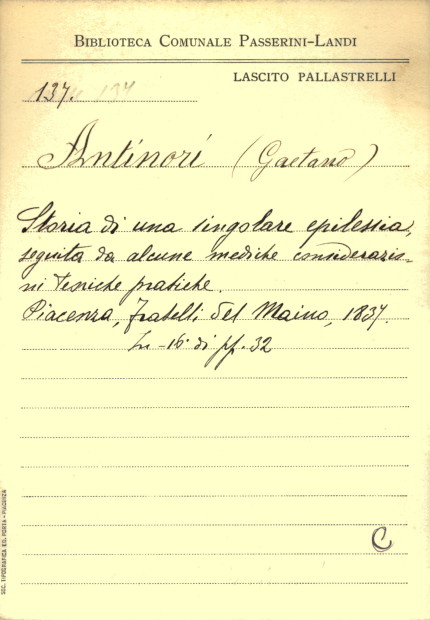 BIBLIOTECA COMUNALE PASSERINI-LANDI
LASCITO PALLASTRELLI
137. 137
Antinori (Gaetano)
Storia di una singolare epilessia,
seguita da alcune mediche considerazio-
ni teoriche pratiche.
Piacenza, Fratelli Del Maino, 1837.
In-16° di pp. 32
C
SOC. TIPOGRAFICA ED. PORTA - PIACENZA